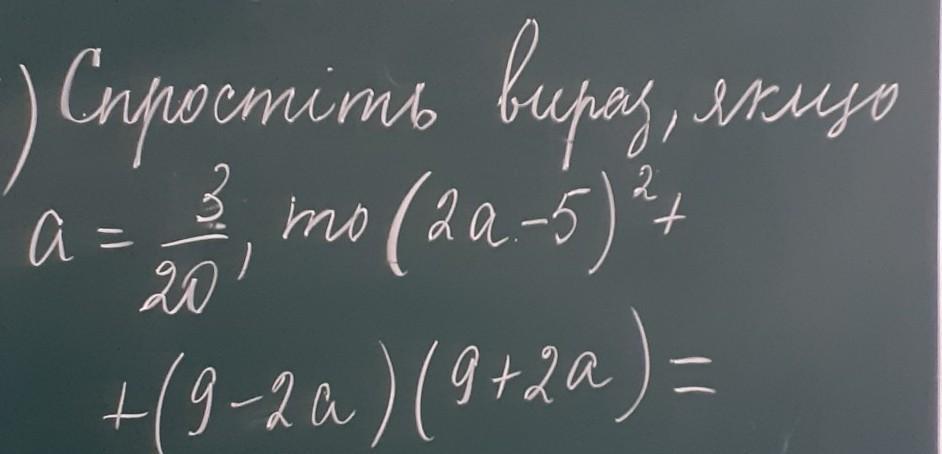 ) Спростіть вираз, якщо
a = 3/20, то (2a - 5)² +
+ (9 - 2a)(9 + 2a) =